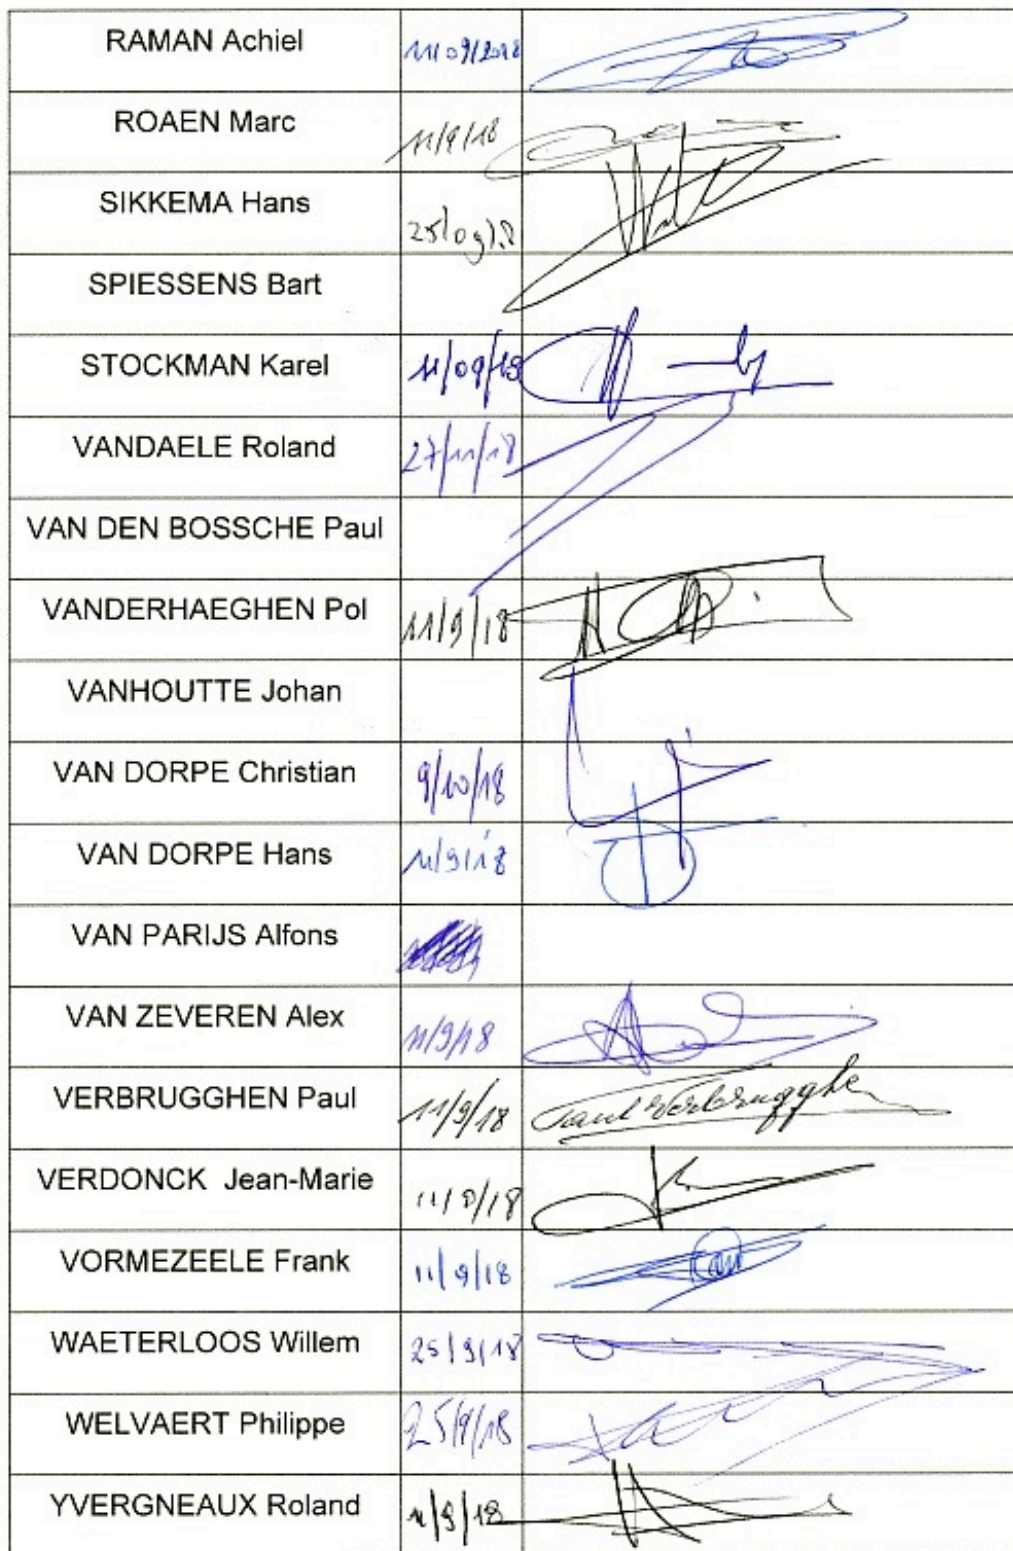 RAMAN Achiel 11/09/2018
ROAEN Marc 11/9/18
SIKKEMA Hans 25/09/18
SPIESSENS Bart
STOCKMAN Karel 11/09/18
VANDAELE Roland 27/11/18
VAN DEN BOSSCHE Paul
VANDERHAEGHEN Pol 11/9/18
VANHOUTTE Johan
VAN DORPE Christian 9/10/18
VAN DORPE Hans 11/9/18
VAN PARIJS Alfons
VAN ZEVEREN Alex 11/9/18
VERBRUGGHEN Paul 11/9/18 Paul Verbrugghe
VERDONCK Jean-Marie 11/9/18
VORMEZEELE Frank 11/9/18
WAETERLOOS Willem 25/9/18
WELVAERT Philippe 25/9/18
YVERGNEAUX Roland 11/9/18